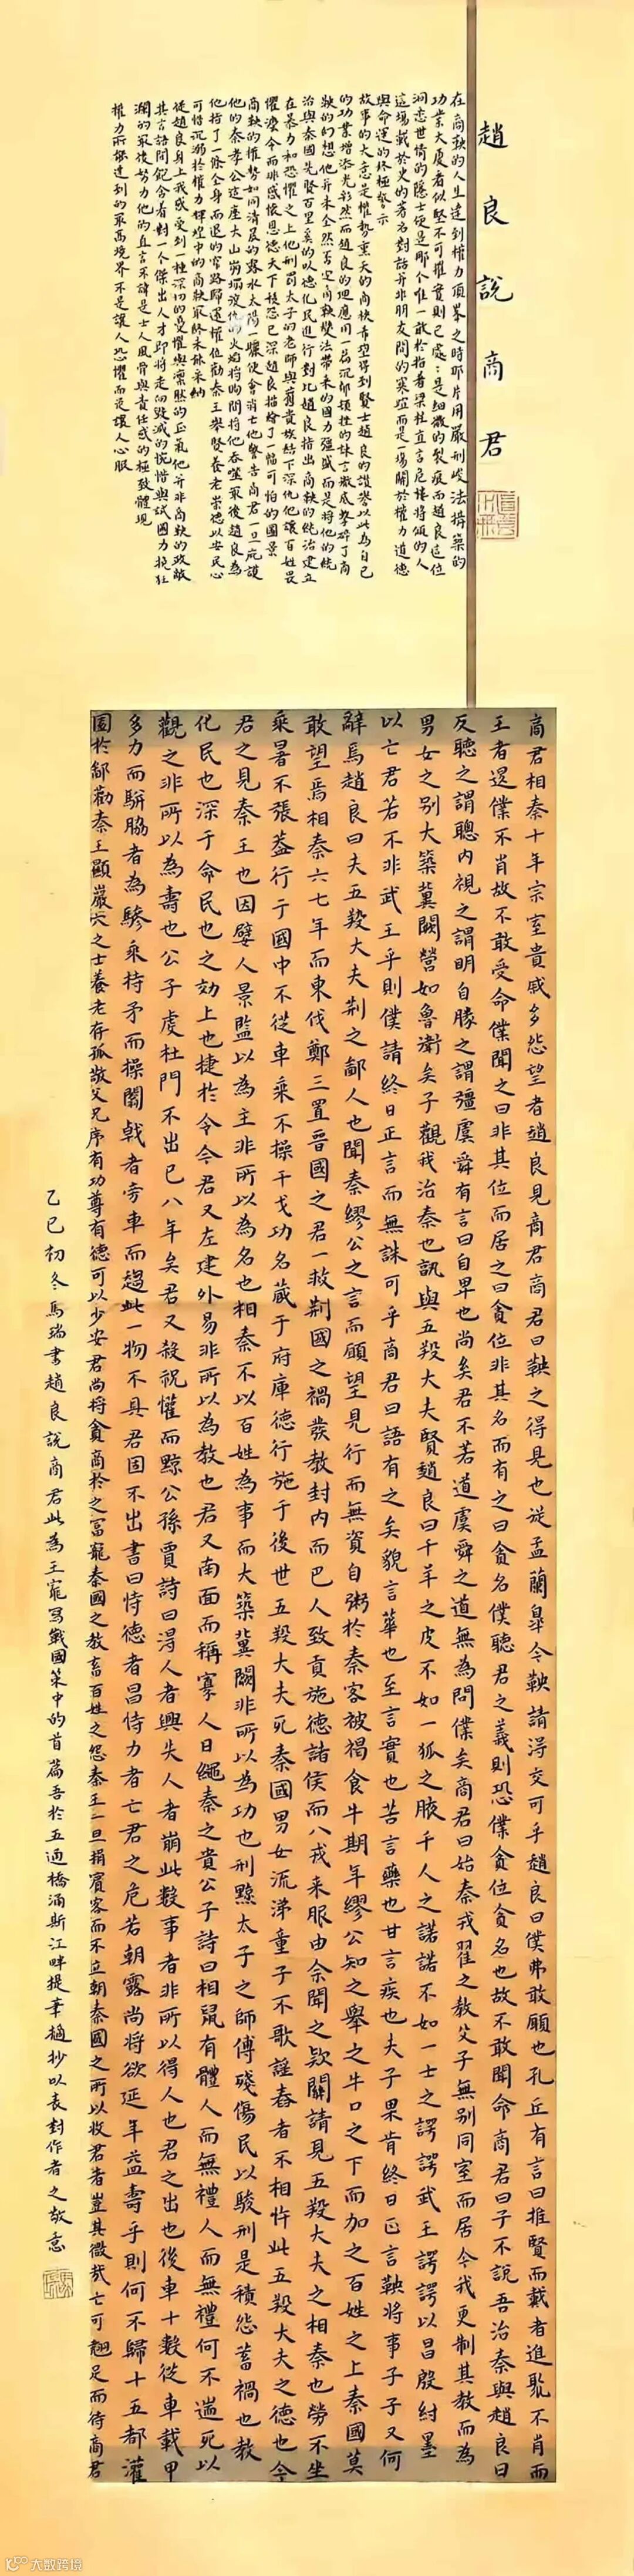 趙良說商君
在商鞅的人生達到權力頂峯之時那片用嚴刑峻法構築的
功業大廈看似堅不可摧實則已處處是細微的裂痕而趙良這位
洞悉世情的隱士便是那個唯一敢於指着梁柱直言危樓將傾的人
這場載於史的著名對話並非朋友間的寒暄而是一場關於權力道德
與命運的終極警示
故事的大意是權勢熏天的商鞅希望得到賢士趙良的讚譽以此為自己
的功業增添光彩然而趙良的回應用一篇沉郁頓挫的諫言徹底擊碎了商
鞅的幻想他并未全然否定商鞅變法帶來的國力強盛而是將他的統
治與秦國先賢百里奚的以德化民進行對比趙良指出商鞅的統治建立
在暴力和恐懼之上他刑罰太子的老師與舊貴族結下深仇他讓百姓畏
懼法令而非感懷恩德天下積怨已深趙良描繪了一幅可怕的圖景
商鞅的權勢如同清晨的露水太陽一曬便會消亡他警告商君一旦庇護
他的秦孝公這座大山崩塌仇恨的火焰將瞬間將他吞噬最後趙良為
他指了一條全身而退的窄路歸還權位勸秦王舉賢養老崇德以安民心
可惜沉溺於權力輝煌中的商鞅最終未能采納
從趙良身上我感受到一種深切的憂懼與凜然的正氣他并非商鞅的政敵
其言語間飽含着對一個傑出人才即將走向毀滅的惋惜與試圖力挽狂
瀾的最後努力他的直言不諱是士人風骨與責任感的極致體現
權力所能達到的最高境界不是讓人恐懼而是讓人心服
商君相秦十年宗室貴戚多怨望者趙良見商君商君曰鞅之得見也從孟蘭皋今鞅請得交可乎趙良曰僕弗敢願也孔丘有言曰推賢而戴者進聚不肖而
王者退僕不肖故不敢受命僕聞之曰非其位而居之曰貪位非其名而有之曰貪名僕聽君之義則恐僕貪位貪名也故不敢聞命商君曰子不說吾治秦與趙良曰
反聽之謂聰內視之謂明自勝之謂彊虞舜有言曰自卑也尚矣君不若道虞舜之道無為問僕矣商君曰始秦戎翟之教父子無別同室而居今我更制其教而為
男女之別大築冀闕營如魯衛矣子觀我治秦也孰與五羖大夫賢趙良曰千羊之皮不如一狐之腋千人之諾諾不如一士之諤諤武王諤諤以昌殷紂墨
以亡君若不非武王乎則僕請終日正言而無誅可乎商君曰語有之矣貌言華也至言實也苦言藥也甘言疾也夫子果肯終日正言鞅將事子子又何
辭焉趙良曰夫五羖大夫荆之鄙人也聞秦繆公之言而願望見行而無資自粥於秦客被褐食牛期年繆公知之舉之牛口之下而加之百姓之上秦國莫
敢望焉相秦六七年而東伐鄭三置晉國之君一救荆國之禍發教封內而巴人致貢施德諸侯而八戎来服由余聞之欵關請見五羖大夫之相秦也勞不坐
乘暑不張蓋行于國中不從車乘不操干戈功名藏于府庫德行施于後世五羖大夫死秦國男女流涕童子不歌謠舂者不相忤此五羖大夫之德也今
君之見秦王也因嬖人景監以為主非所以為名也相秦不以百姓為事而大築冀闕非所以為功也刑黥太子之師傅殘傷民以駿刑是積怨蓄禍也教
化民也深于命民也之効上也捷於令今君又左建外易非所以為教也君又南面而稱寡人日繩秦之貴公子詩曰相鼠有體人而無禮人而無禮何不遄死以
觀之非所以為壽也公子虔杜門不出已八年矣君又殺祝懽而黥公孫賈詩曰得人者興失人者崩此數事者非所以得人也君之出也後車十數從車載甲
多力而駢脇者為驂乘持矛而操闟戟者旁車而趨此一物不具君固不出書曰恃德者昌恃力者亡君之危若朝露尚將欲延年益壽乎則何不歸十五都灌
園於鄙勸秦王顯巖穴之士養老存孤敬父兄序有功尊有德可以少安君尚將貪商於之富寵秦國之教畜百姓之怨秦王一旦捐賓客而不立朝秦國之所以收君者豈其微哉亡可翹足而待商君
乙巳初冬馬瑞書趙良說商君此為王寵寫戰國策中的首篇吾於五通橋涌斯江畔提筆通抄以表對作者之敬意
大数跨境